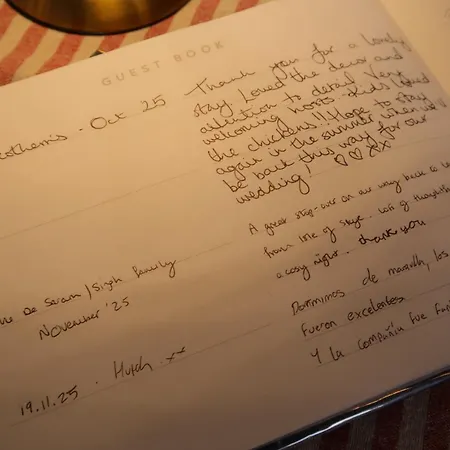 GUEST BOOK
Oct 25
Thank you for a lovely
stay. Loved the decor and
attention to detail. Very
welcoming hosts. Kids loved
the chickens!!! Hope to stay
again in the summer when we'll
be back this way for our
wedding! ♡♡xx
De Saram / Singh family
November '25
A great stop-over on our way back to
from Isle of Skye. Lots of thoughtful
a cosy night. thank you
19.11.25 . Hutch xx
Dormimos de maravilla, los
fueron excelentes
Y la compañía fue